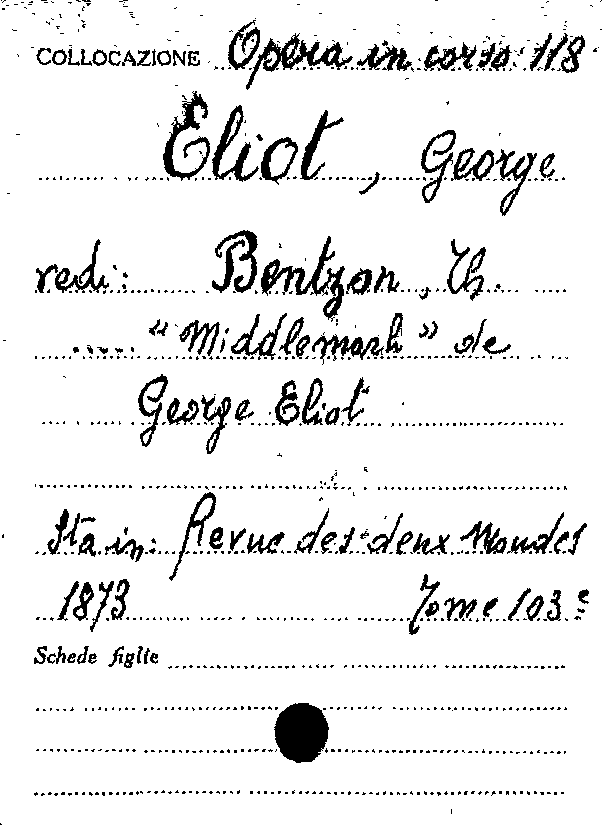 COLLOCAZIONE Opera in corso 118
Eliot, George
vedi: Bentzon, Th.
..... "Middlemarh" de
George Eliot
Sta in: Revue des deux Mondes
1873 Tome 103e
Schede figlie